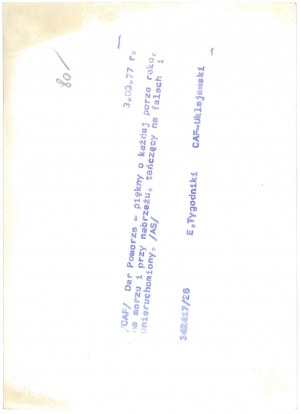 80/-
3.03.77 r.
/CAF/ Dar Pomorza - piękny o każdej porze roku,
na morzu i przy nabrzeżu, tańczący na falach i
unieruchomiony. /AS/
E.Tygodniki CAF-Uklejewski
342417/26